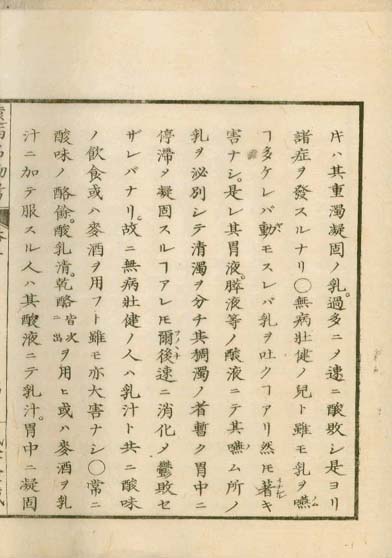 片ハ其重濁凝固ノ乳。過多ニノ速ニ酸敗シ是ヨリ
諸症ヲ發スルナリ〇無病壯健ノ兒ト雖モ乳ヲ嚥
ヿ多ケレバ動モスレバ乳ヲ吐クヿアリ然𪜈著キ
害ナシ。是レ其胃液。膵液等ノ酸液ニテ其嚥ム所ノ
乳ヲ泌別シテ清濁ヲ分チ其稠濁ノ者暫ク胃中ニ
停滯ヲ凝固スルヿアレ𪜈爾後速ニ消化ヲ鬱敗セ
ザレバナリ。故ニ無病壯健ノ人ハ乳汁ト共ニ酸味
ノ飲食或ハ麥酒ヲ用フト雖モ亦大害ナシ〇常ニ
酸味ノ酪偷。酸乳清。乾酪皆次ニ出ヲ用ヒ或ハ麥酒ヲ乳
汁ニ加テ服スル人ハ其酸液ニテ乳汁。胃中ニ凝固